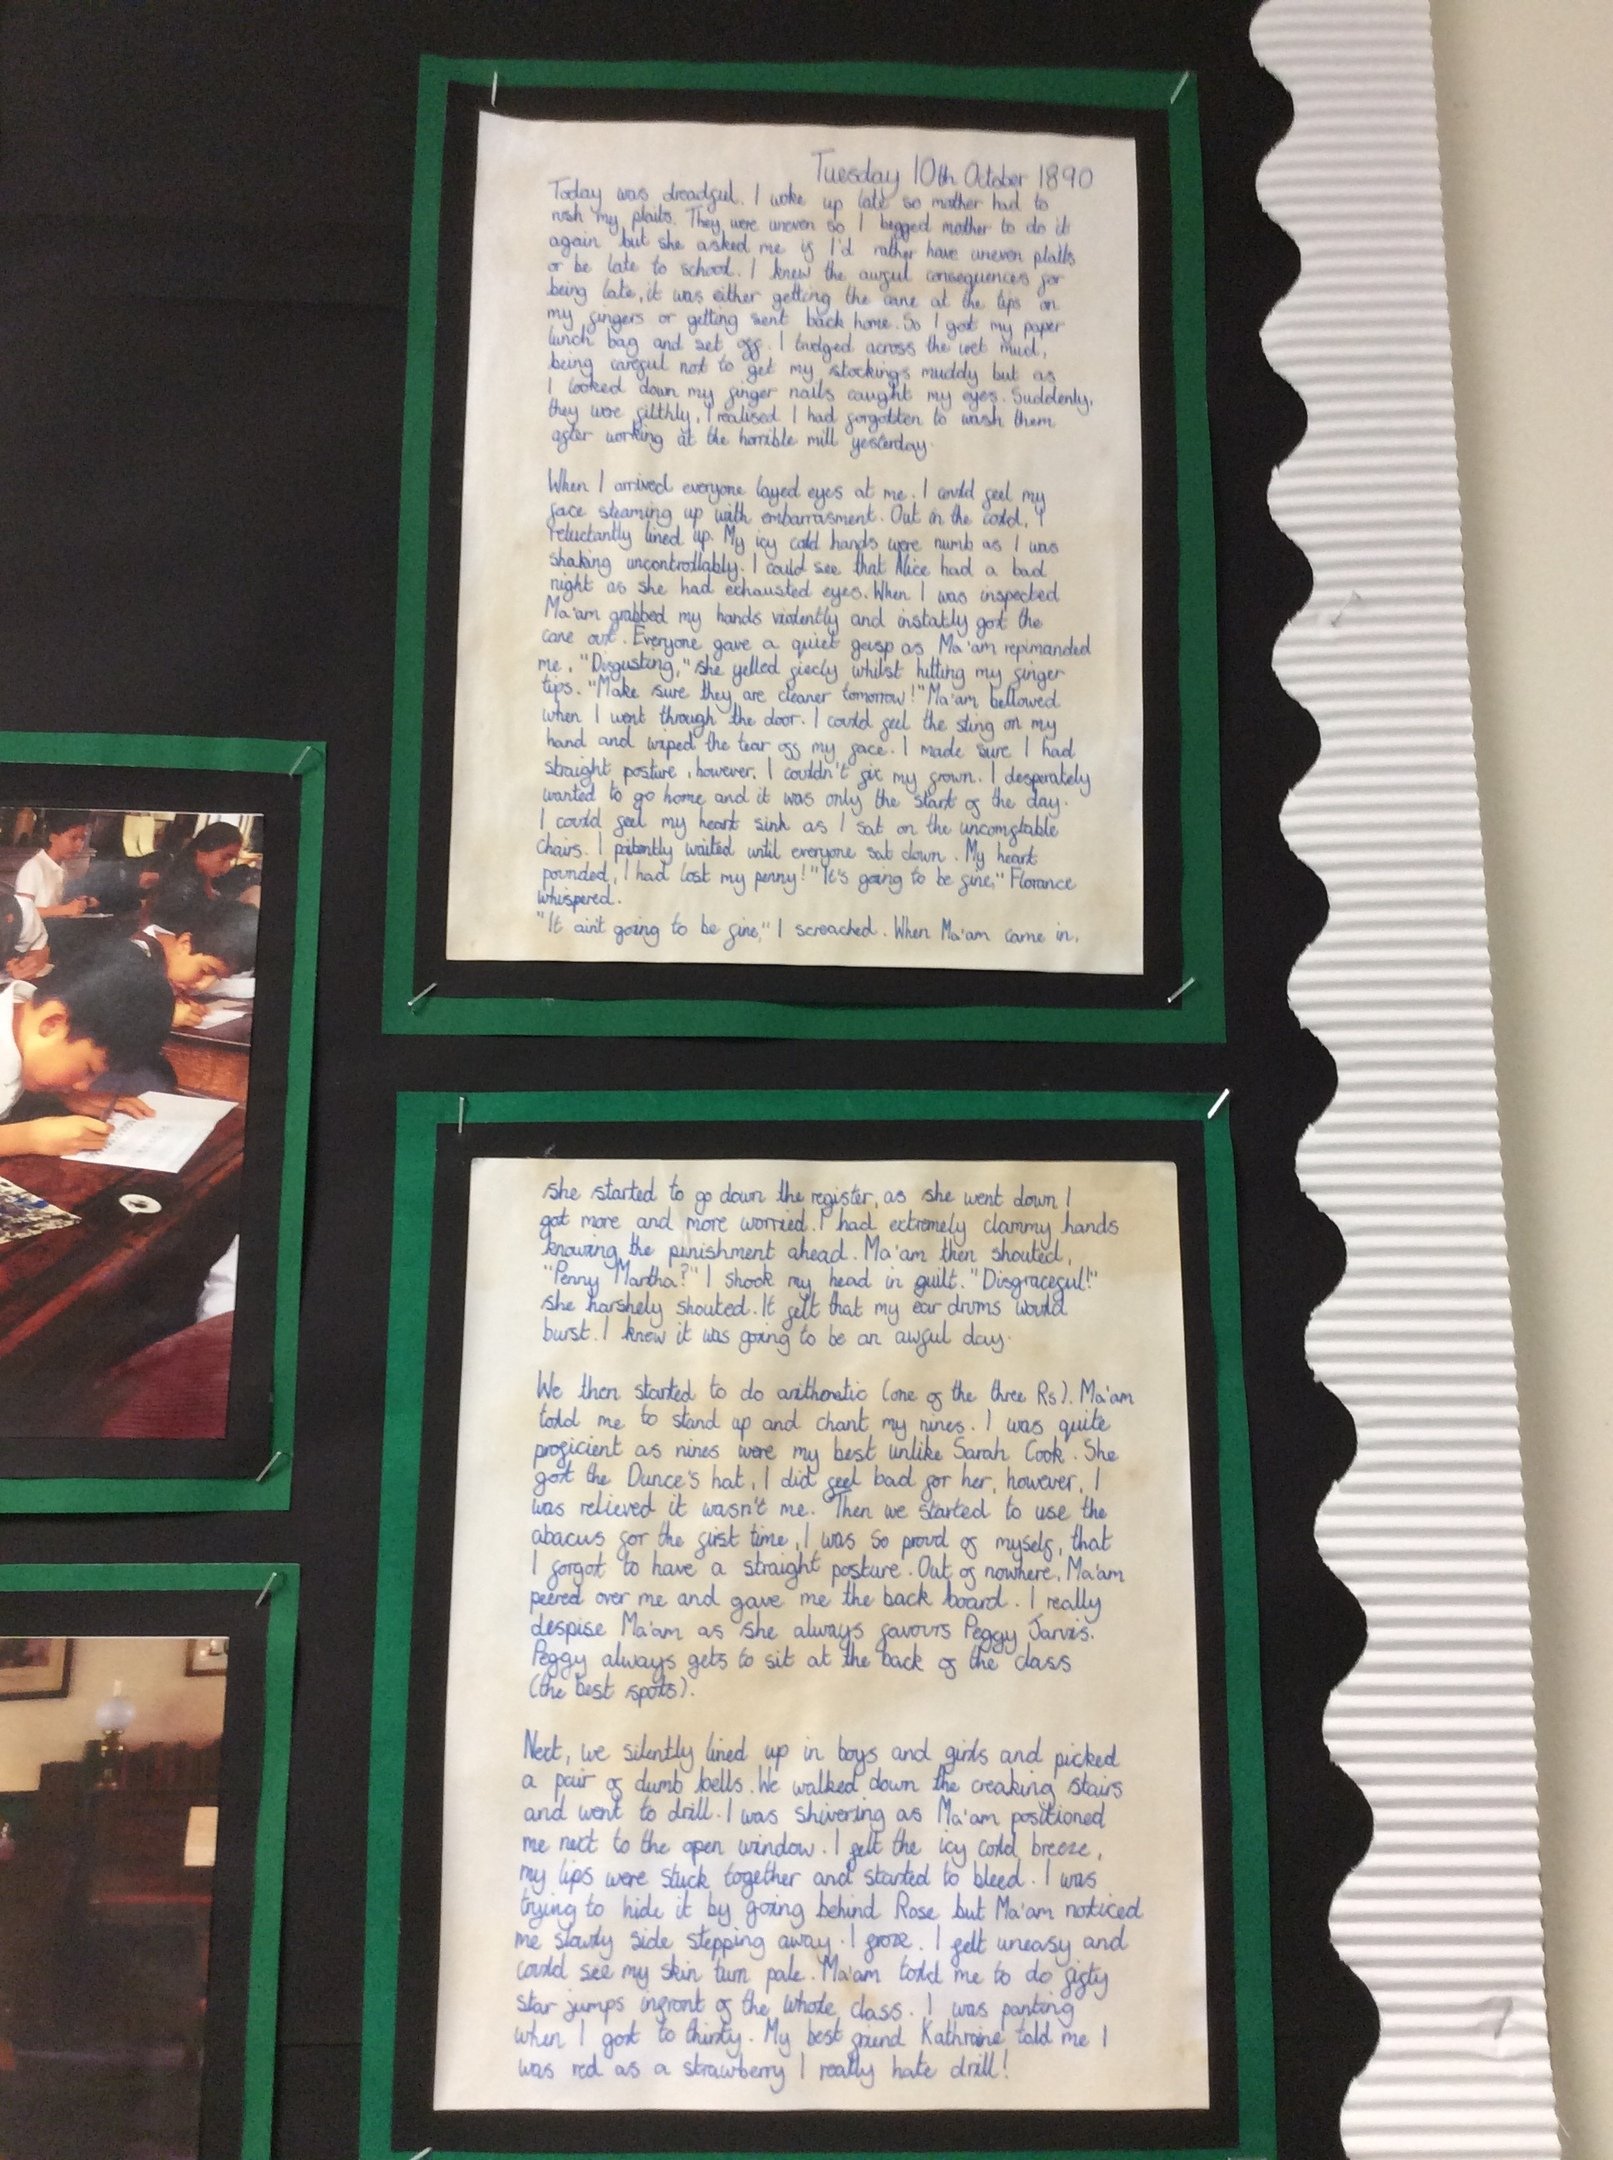 Tuesday 10th October 1890
Today was dreadful. I woke up late so mother had to
rush my plaits. They were uneven so I begged mother to do it
again but she asked me if I'd rather have uneven plaits
or be late to school. I knew the awful consequences for
being late, it was either getting the cane at the tips on
my fingers or getting sent back home. So I got my paper
lunch bag and set off. I trudged across the wet mud,
being careful not to get my stockings muddy but as
I looked down my finger nails caught my eyes. Suddenly,
they were filthly, I realised I had forgotten to wash them
after working at the horrible mill yesterday.
When I arrived everyone layed eyes at me. I could feel my
face steaming up with embarrasment. Out in the cold, I
reluctantly lined up. My icy cold hands were numb as I was
shaking uncontrollably. I could see that Alice had a bad
night as she had exhausted eyes. When I was inspected
Ma'am grabbed my hands violently and instatly got the
cane out. Everyone gave a quiet gasp as Ma'am repimanded
me. "Disgusting," she yelled fiecly whilst hitting my finger
tips. "Make sure they are cleaner tomorrow!" Ma'am bellowed
when I went through the door. I could feel the sting on my
hand and wiped the tear off my face. I made sure I had
straight posture, however, I couldn't fix my frown. I desperately
wanted to go home and it was only the start of the day.
I could feel my heart sink as I sat on the uncomftable
chairs. I patiently waited until everyone sat down. My heart
pounded, I had lost my penny! "It's going to be fine," Florance
whispered.
"It ain't going to be fine," I screached. When Ma'am came in,
she started to go down the register, as she went down I
got more and more worried. I had extremely clammy hands
knowing the punishment ahead. Ma'am then shouted,
"Penny Martha?" I shook my head in guilt. "Disgraceful!"
she harshely shouted. It felt that my ear drums would
burst. I knew it was going to be an awful day.
We then started to do arithmetic (one of the three Rs). Ma'am
told me to stand up and chant my nines. I was quite
proficient as nines were my best unlike Sarah Cook. She
got the Dunce's hat, I did feel bad for her, however, I
was relieved it wasn't me. Then we started to use the
abacus for the first time, I was so proud of myself, that
I forgot to have a straight posture. Out of nowhere, Ma'am
peered over me and gave me the back board. I really
despise Ma'am as she always favours Peggy Jarvis.
Peggy always gets to sit at the back of the class
(the best spots).
Next, we silently lined up in boys and girls and picked
a pair of dumb bells. We walked down the creaking stairs
and went to drill. I was shivering as Ma'am positioned
me next to the open window. I felt the icy cold breeze,
my lips were stuck together and started to bleed. I was
trying to hide it by going behind Rose but Ma'am noticed
me slowly side stepping away. I froze. I felt uneasy and
could see my skin turn pale. Ma'am told me to do fifty
star jumps infront of the whole class. I was panting
when I got to thirty. My best friend Kathrine told me I
was red as a strawberry I really hate drill!